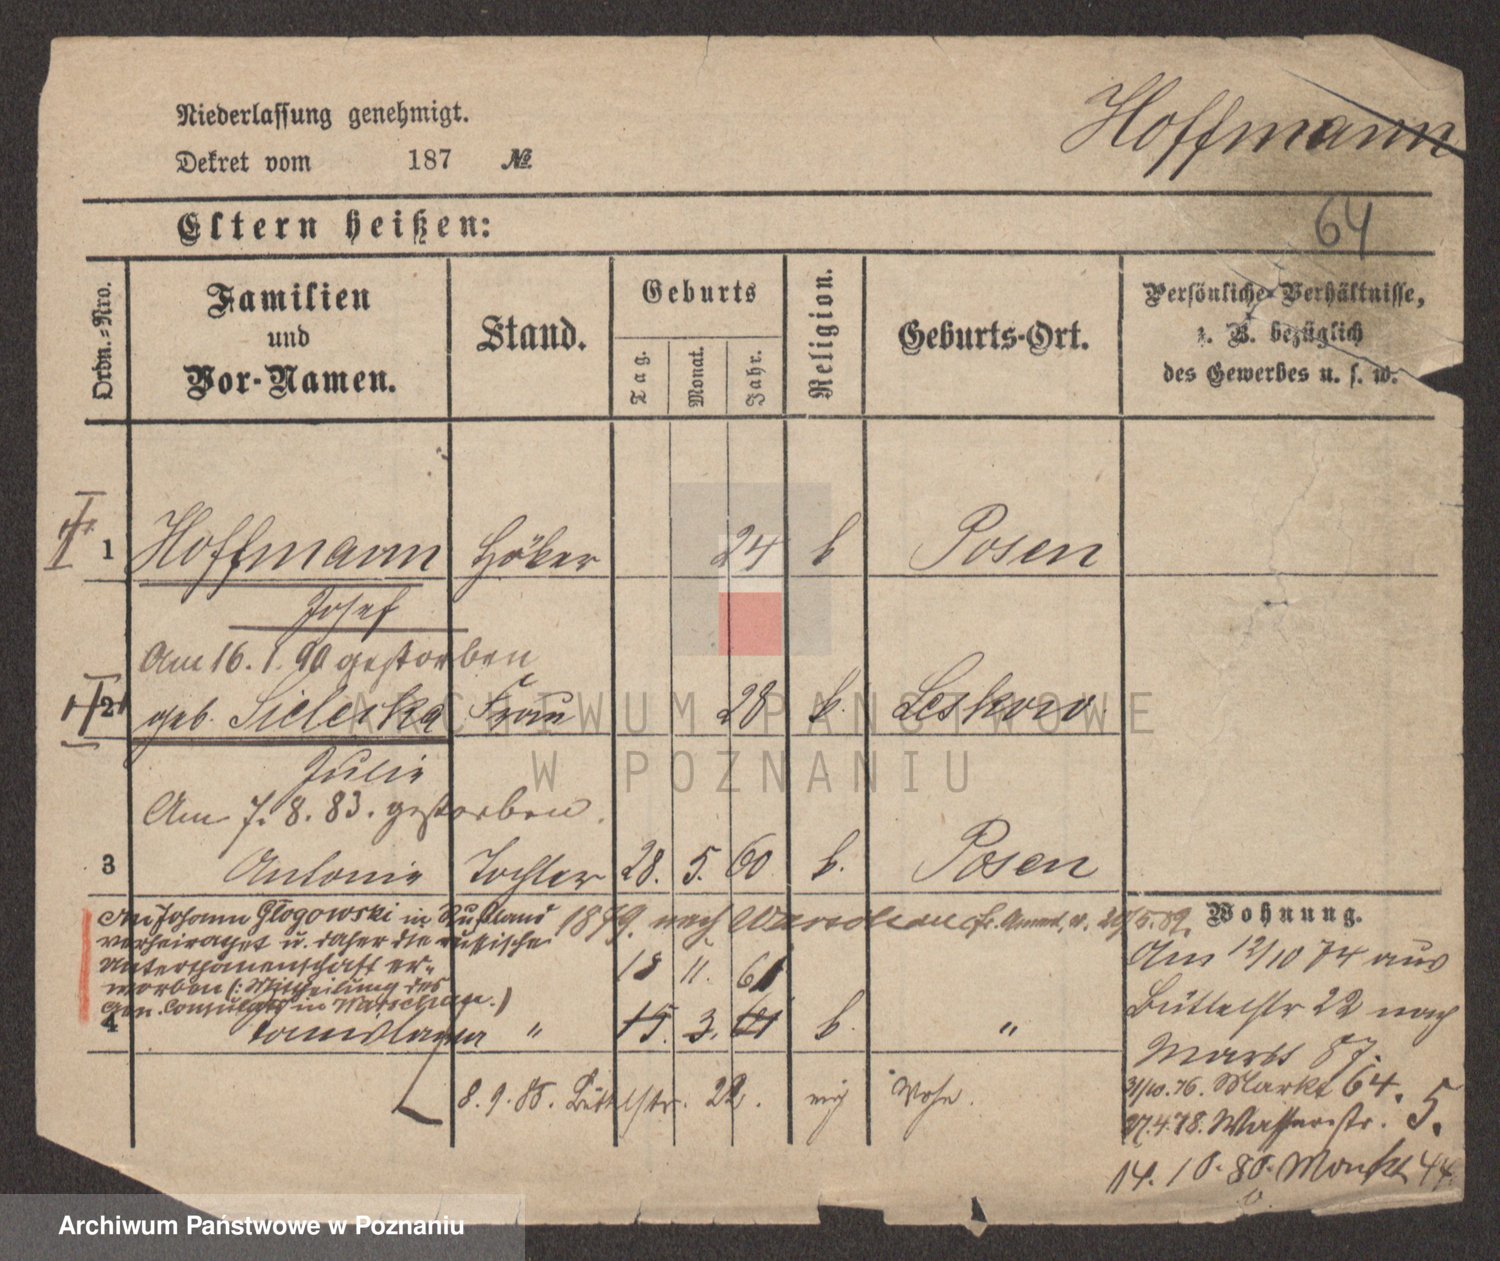 Hoffmann
Niederlassung genehmigt.
Dekret vom 187 №
64
Eltern heißen:
Ordn.-Nro.
Familien
und
Vor-Namen.
Stand.
Geburts
Tag.
Monat.
Jahr.
Religion.
Geburts-Ort.
Persönliche Verhältnisse,
z. B. bezüglich
des Gewerbes u. s. w.
1 Hoffmann Höker 24 k Posen
Josef
Am 16. 1. 90 gestorben
2 geb. Sielerska Frau 28 k. Leskowo
Julie
Am 7. 8. 83. gestorben.
3 Antonie Tochter 28. 5. 60 k. Posen
An Johann Głogowski in Rußland 1879. nach Warschau
verheirathet u. daher die russische
Unterthanenschaft er-
worben (: Mittheilung des
Gen. Consulats in Warschau.)
18 11. 61
4 " 15. 3. 61 k. "
8. 9. 85. Büttelstr. 22.
Wohnung.
Am 12/10 74 aus
Büttelstr 22 nach
Markt 87.
31/10. 76. Markt 64.
27. 4. 78. Wasserstr. 5.
14. 10. 80. Markt 44.
ARCHIWUM PAŃSTWOWE
W POZNANIU
Archiwum Państwowe w Poznaniu